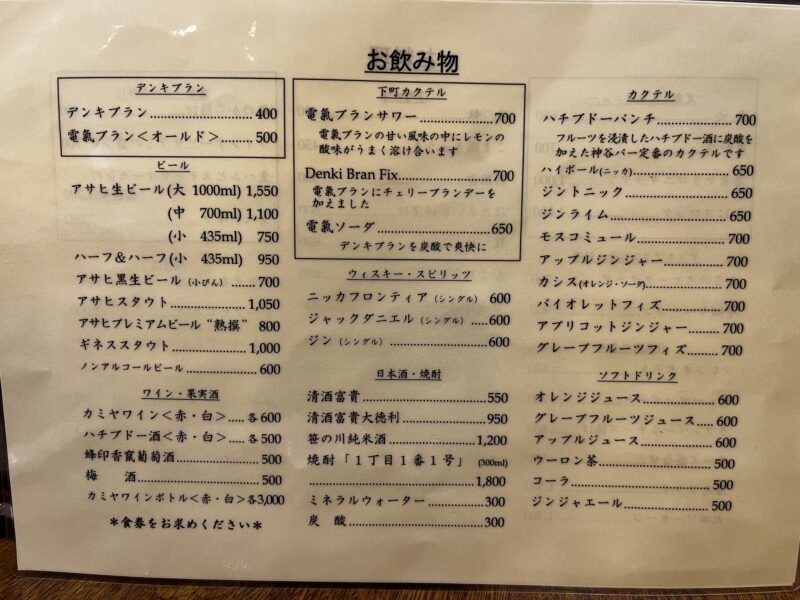 お飲み物
デンキブラン
デンキブラン....................400
電氣ブラン＜オールド＞.........500
ビール
アサヒ生ビール(大 1000ml) 1,550
(中 700ml) 1,100
(小 435ml) 750
ハーフ＆ハーフ(小 435ml) 950
アサヒ黒生ビール (小びん) .......700
アサヒスタウト....................1,050
アサヒプレミアムビール“熟撰” 800
ギネススタウト....................1,000
ノンアルコールビール....................600
ワイン・果実酒
カミヤワイン＜赤・白＞.....各600
ハチブドー酒＜赤・白＞.....各500
蜂印香竄葡萄酒....................500
梅 酒....................500
カミヤワインボトル＜赤・白＞各3,000
＊食券をお求めください＊
下町カクテル
電氣ブランサワー..............700
電氣ブランの甘い風味の中にレモンの
酸味がうまく溶け合います
Denki Bran Fix....................700
電氣ブランにチェリーブランデーを
加えました
電氣ソーダ....................650
デンキブランを炭酸で爽快に
ウィスキー・スピリッツ
ニッカフロンティア (シングル) 600
ジャックダニエル (シングル) .....600
ジン (シングル) ....................600
日本酒・焼酎
清酒富貴....................550
清酒富貴大徳利....................950
笹の川純米酒....................1,200
焼酎「１丁目１番１号」 (300ml)
....................1,800
ミネラルウォーター..............300
炭 酸....................300
カクテル
ハチブドーパンチ..............700
フルーツを浸漬したハチブドー酒に炭酸を
加えた神谷バー定番のカクテルです
ハイボール(ニッカ)....................650
ジントニック....................650
ジンライム....................650
モスコミュール....................700
アップルジンジャー..............700
カシス(オレンジ・ソーダ)..............700
バイオレットフィズ..............700
アプリコットジンジャー.........700
グレープフルーツフィズ.........700
ソフトドリンク
オレンジジュース..............600
グレープフルーツジュース.....600
アップルジュース..............600
ウーロン茶....................500
コーラ....................500
ジンジャエール....................500